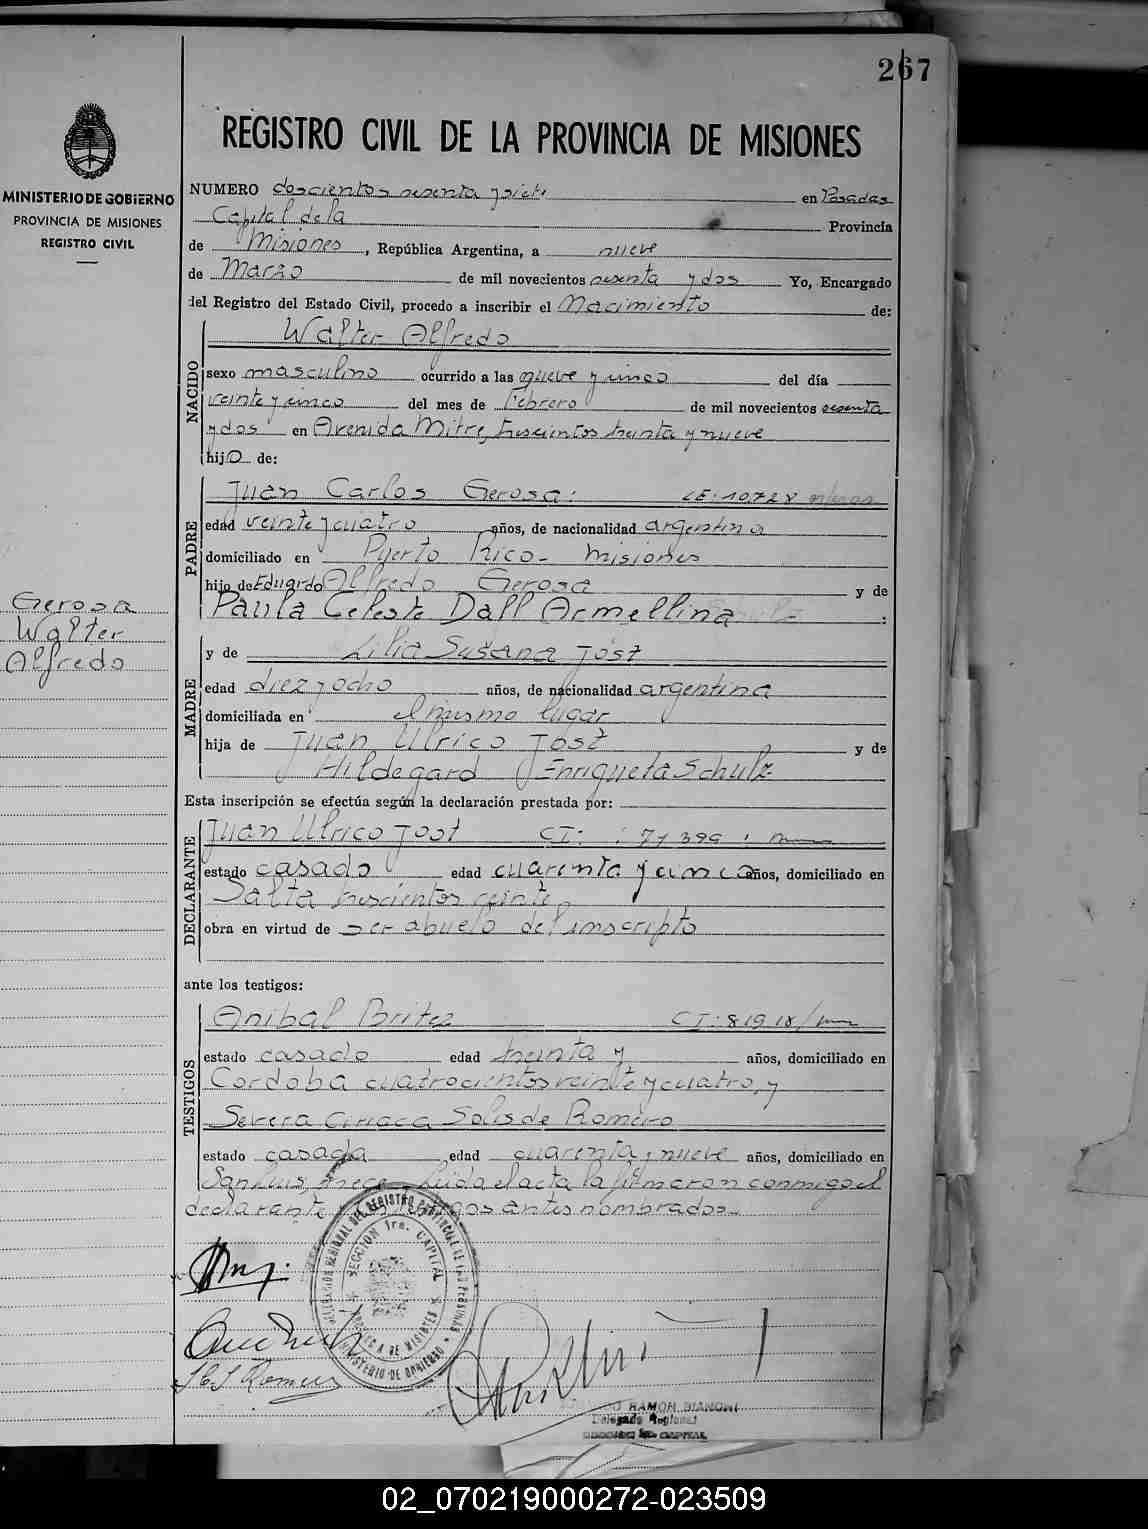 267
REGISTRO CIVIL DE LA PROVINCIA DE MISIONES
MINISTERIO DE GOBIERNO
PROVINCIA DE MISIONES
REGISTRO CIVIL
NUMERO doscientos sesenta y siete en Posadas
Capital de la Provincia
de Misiones, República Argentina, a nueve
de Marzo de mil novecientos sesenta y dos Yo, Encargado
del Registro del Estado Civil, procedo a inscribir el Nacimiento de:
NACIDO
Walter Alfredo
sexo masculino ocurrido a las nueve y cinco del día
veinte y cinco del mes de febrero de mil novecientos sesenta
y dos en Avenida Mitre, trescientos treinta y nueve
hijo de:
PADRE
Juan Carlos Gerosa: LE: 10728
edad veinte y cuatro años, de nacionalidad argentina
domiciliado en Puerto Rico - Misiones
hijo de Eduardo Alfredo Gerosa y de
Paula Celeste Dall Armellina :
Gerosa
Walter
Alfredo
MADRE
y de Lilia Susana Jost
edad diez y ocho años, de nacionalidad argentina
domiciliada en el mismo lugar
hija de Juan Ulrico Jost y de
Hildegard Enriqueta Schulz
Esta inscripción se efectúa según la declaración prestada por:
DECLARANTE
Juan Ulrico Jost CI: 71399
estado casado edad cuarenta y cinco años, domiciliado en
Salta trescientos veinte
obra en virtud de ser abuelo del inscripto
ante los testigos:
TESTIGOS
Anibal Britez CI: 81918/
estado casado edad treinta y años, domiciliado en
Cordoba cuatrocientos veinte y cuatro, y
Severa Ciriaca Solis de Romero
estado casada edad cuarenta y nueve años, domiciliado en
San Luis, trece. Leída el acta la firmaron conmigo el
declarante testigos antes nombrados.
SECCION 1ra. CAPITAL
PROVINCIA DE MISIONES
MINISTERIO DE GOBIERNO
S C S Romero
RAMON BIANCHI
Delegado Regional
SECCION 1a. CAPITAL
02_070219000272-023509